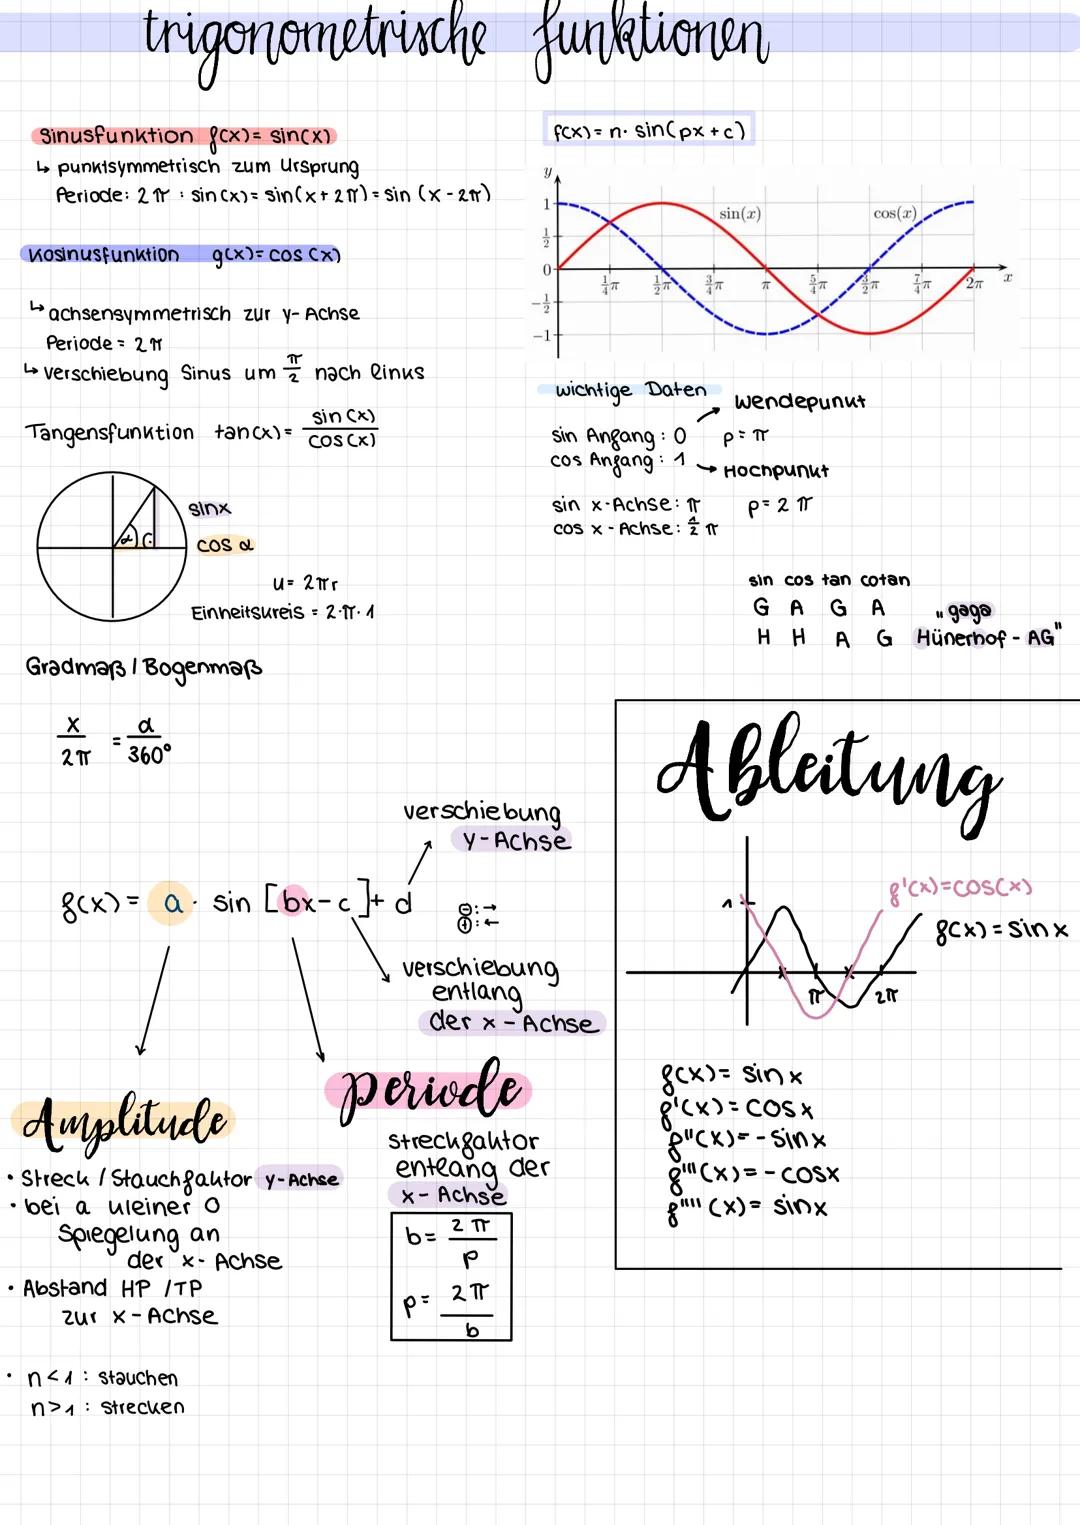 trigonometrische funktionen
Sinusfunktion f(x)= sin(x)
↳ punktsymmetrisch zum Ursprung
Periode: 2π : sin(x)= sin(x+2π)= sin (x-2π)
Kosinusfunktion g(x)= cos (x)
↳ achsensymmetrisch zur y-Achse
Periode = 2π
↳ verschiebung Sinus um π/2 nach links
Tangensfunktion tan(x)= sin(x)/cos(x)
sinx
cos α
α
u= 2πr
Einheitskreis = 2·π·1
Gradmaß / Bogenmaß
x/2π = α/360°
f(x)= n· sin(px+c)
y
1
1/2
0
-1/2
-1
sin(x)
cos(x)
1/4π 1/2π 3/4π π 5/4π 3/2π 7/4π 2π x
wichtige Daten
Wendepunkt
sin Angang : 0 p= π
cos Angang : 1 → Hochpunkt
sin x-Achse: π p= 2π
cos x-Achse: 1/2 π
sin cos tan cotan
G A G A „gaga
H H A G Hünerhof - AG"
verschiebung
y-Achse
f(x)= a· sin [bx-c]+ d
⊖:→
⊕:←
verschiebung
entlang
der x-Achse
Amplitude
• Streck / Stauchfaktor y-Achse
• bei a kleiner 0
Spiegelung an
der x-Achse
• Abstand HP /TP
zur x-Achse
• n<1 : stauchen
n>1 : strecken
periode
streckfaktor
entlang der
x-Achse
b= 2π/p
p= 2π/b
Ableitung
1
f'(x)=cos(x)
f(x)= sin x
π
2π
f(x)= sin x
f'(x)= cos x
f''(x)= - sin x
f'''(x)= - cos x
f''''(x)= sin x